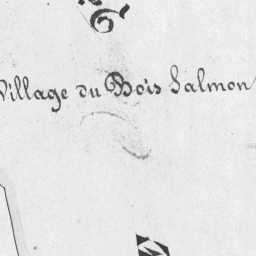 Village du Bois Salmon